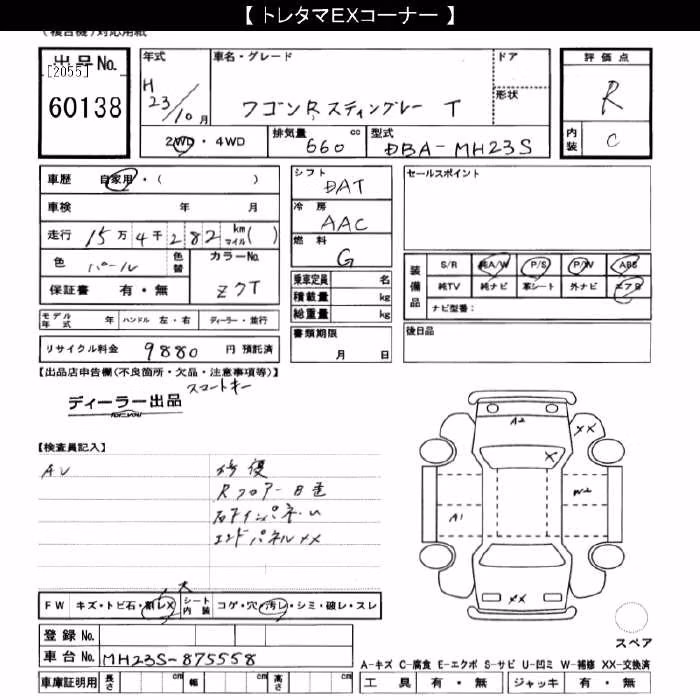 【 トレタマEXコーナー 】
(複合機)対応用紙
出品No.
[2055]
60138
年式
H 23/10月
車名・グレード
ワゴンR スティングレー T
ドア
形状
評価点
R
内装
C
2WD・4WD
排気量
660 cc
型式
DBA-MH23S
車歴 自家用・( )
車検 年 月
走行 15万4千282 km マイル( )
色 パール
色替
カラーNo.
Z7T
保証書 有・無
モデル年式 年 ハンドル 左・右 ディーラー・並行
リサイクル料金 9880 円 預託済
シフト
DAT
冷房
AAC
燃料
G
乗車定員 名
積載量 kg
総重量 kg
書類期限
月 日
セールスポイント
装備品
S/R 純A/W P/S P/W ABS
純TV 純ナビ 革シート 外ナビ エアB
ナビ型番:
後日品
【出品店申告欄(不良箇所・欠品・注意事項等)】
スマートキー
ディーラー出品
【検査員記入】
AV
修復
Rフロアー
エンドパネルXX
A2
XX
X
W2
A1
XX
スペア
FW キズ・トビ石・割レX
大
シート内装 コゲ・穴・汚レ・シミ・破レ・スレ
登録No.
車台No. MH23S-875558
車庫証明用 長さ cm 幅 cm 高さ cm
A-キズ C-腐食 E-エクボ S-サビ U-凹ミ W-補修 XX-交換済
工具 有・無 ジャッキ 有・無